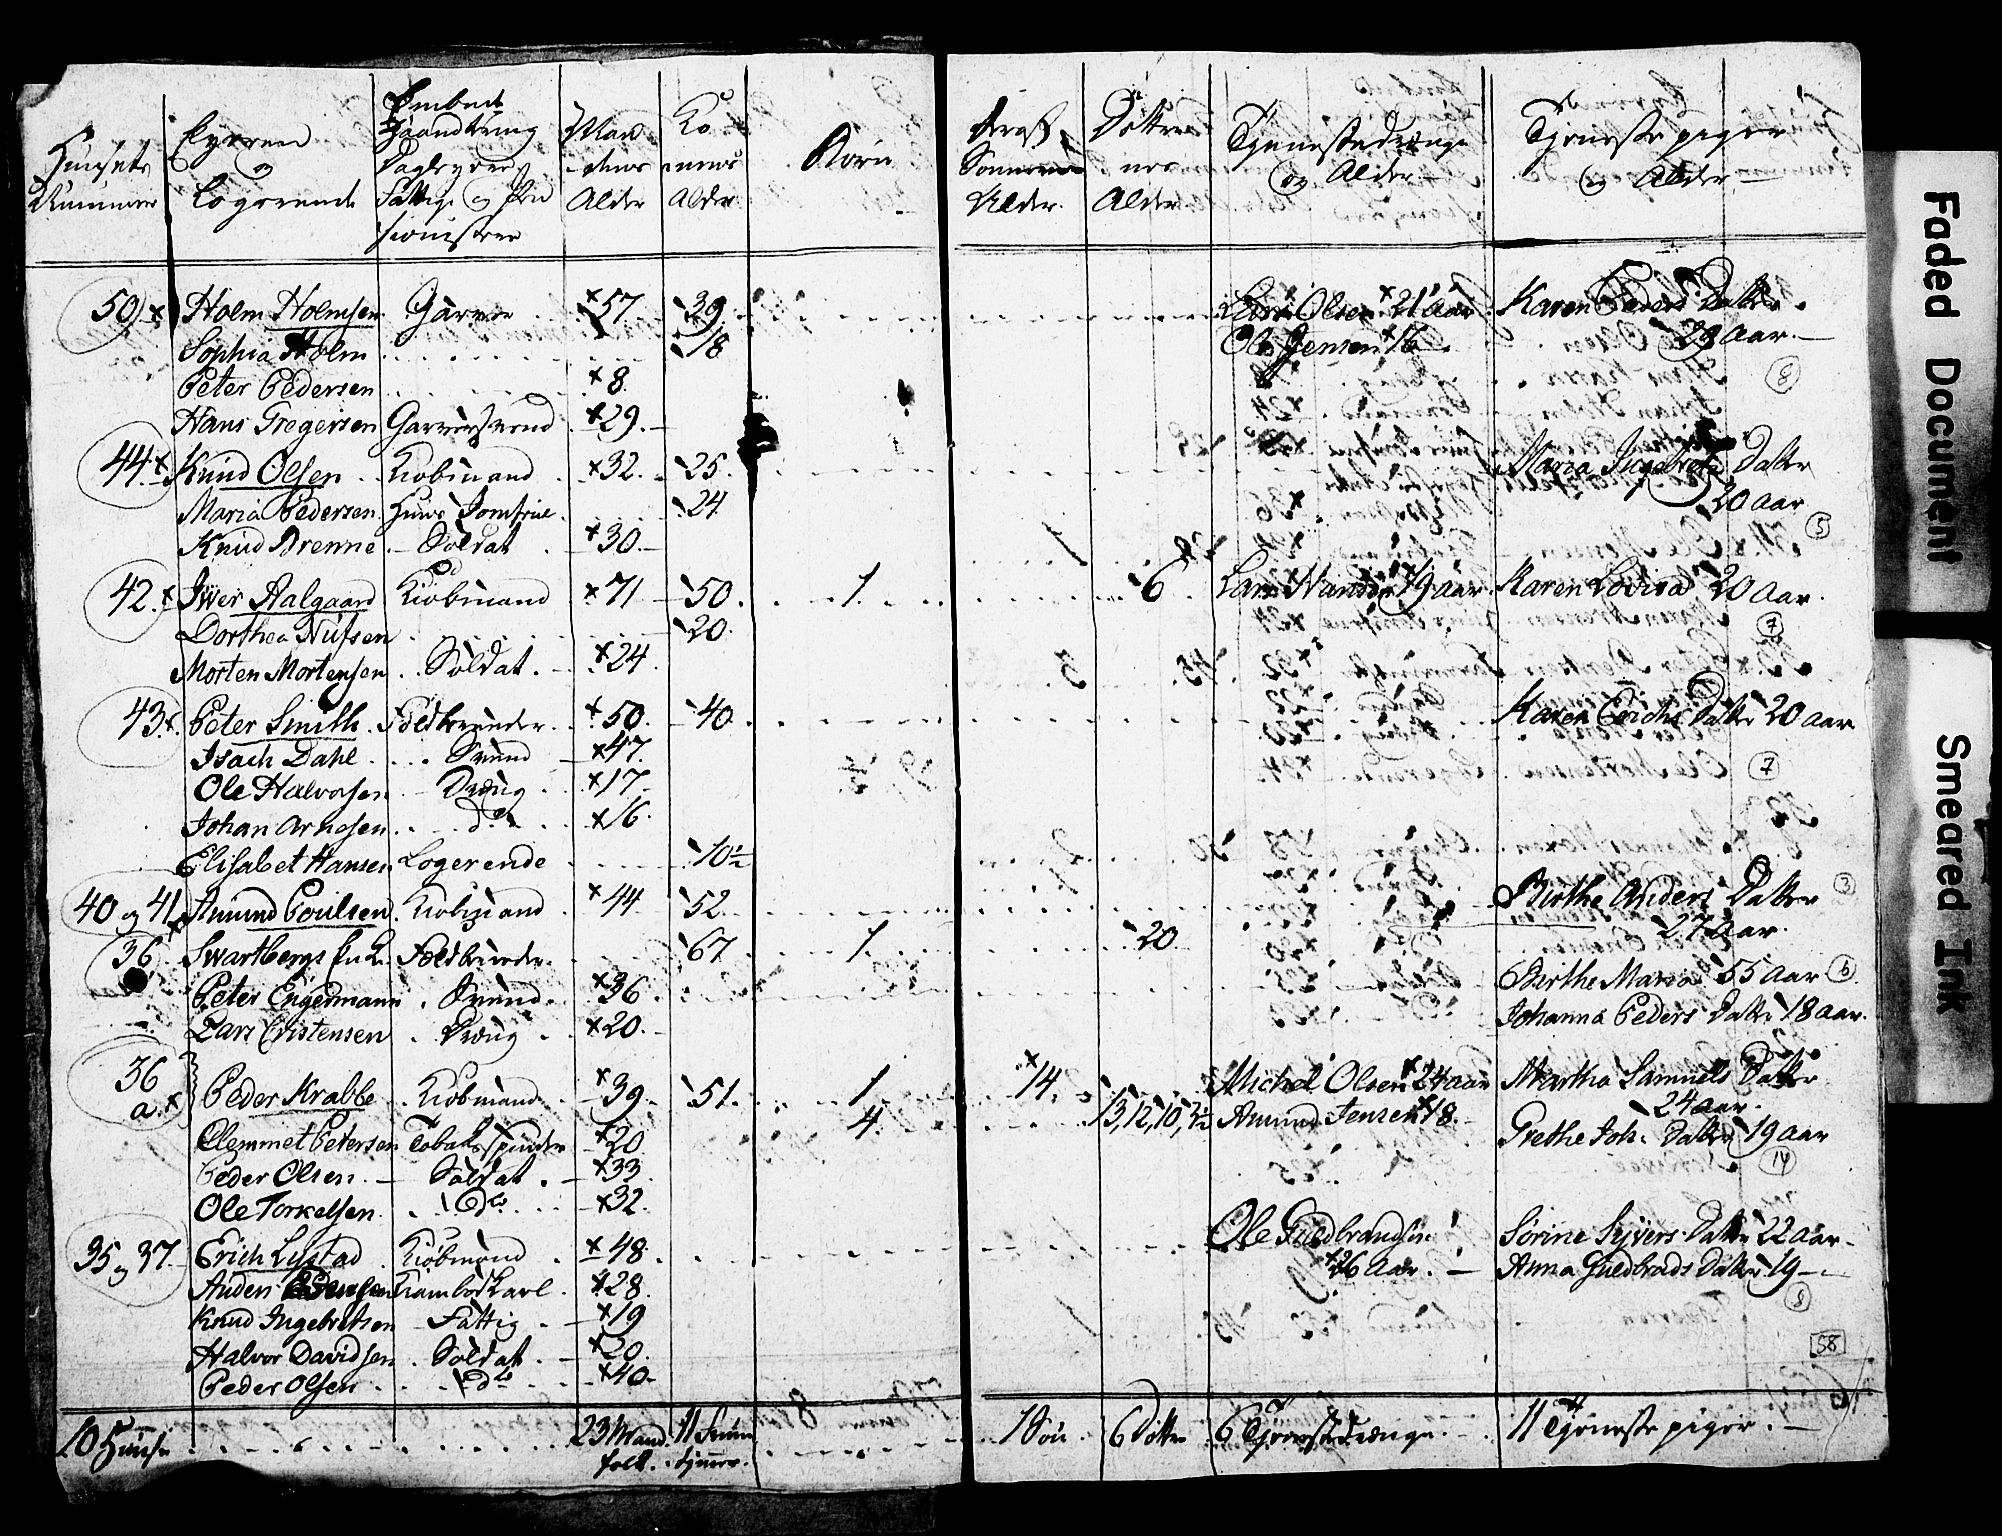 Huusets Nummer | Eyeren og Logerende | Embede Haandtering Daglejere Fattige og Pensionister | Mandenes Alder | Konernes Alder | Børn | deraf Sønnernes Alder | Døttrenes Alder | Tjenestedrenge og Alder | Tjenestepiger og Alder
50 Holm Holmsen Garver 57 39 Olsen 21 aar Karen Peders Datter
Sophia Holm 18 Ole Jensen 16 29 aar
Peter Pedersen 8 8
Hans Gregersen Garversvend 29
44 Knud Olsen Kiøbmand 32 25 Maria Ingebrets Datter
Maria Pedersen Huus Jomfrue 24 20 aar
Knud Brenne Soldat 30 5
42 Iwer Aalgaard Kiøbmand 71 50 1 6 Lars Hansen 19 aar Karen Lovisa 20 aar
Dorthea 20 7
Morten Mortensen Soldat 24
43 Peter Smith 50 40 Karen Erichs Datter 20 aar
Isach Dahl Svend 47
Ole Halvorsen Dreng 17 7
Johan Arnesen do 16
Elisabet Hansen Logerende 10½
40 og 41 Amund Poulsen Kiøbmand 44 52 Birthe Anders Datter 3
27 aar
36 Swartbergs 67 1 20
Peter Engermann Svend 36 Birthe Maria 55 aar 6
Lars Cristensen Dreng 20 Johanna Peders Datter 18 aar
36 a Peder Krabbe Kiøbmand 39 51 1 14 Michel Olsen 24 aar Martha Samuels Datter
24 aar
4 13, 12, 10, 3½ Amund Jensen 18
Clemmet Petersen Tobakspinder 20 Grethe Joh: Datter 19 aar
Peder Olsen Soldat 33 14
Ole Torkelsen do 32
35 og 37 Erich Lystad Kiøbmand 48 Ole Guldbrandsen Sørine Syvers Datter 22 aar
Anders Karl 28 26 Aar Anna Guldbrads Datter 19
Knud Ingebretsen Fattig 19 8
Halvor Davidsen Soldat 20 58
Peder Olsen do 40
10 Huuse 23 Mandfolk 11 Fruentimmer 1 Søn 6 Døttre 6 Tjenestedrenge 11 Tjenestepiger
Faded Document
Smeared Ink